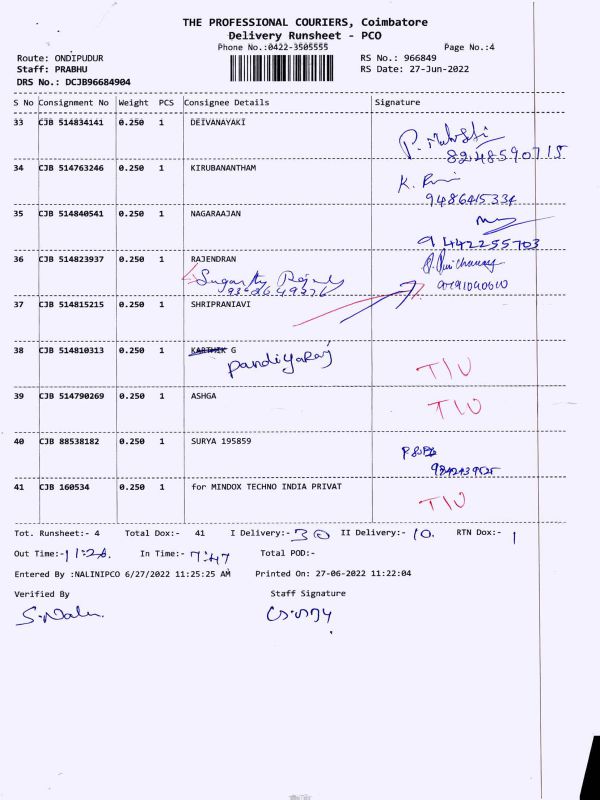 THE PROFESSIONAL COURIERS, Coimbatore
Delivery Runsheet - PCO
Phone No.:0422-3505555 Page No.:4
Route: ONDIPUDUR RS No.: 966849
Staff: PRABHU RS Date: 27-Jun-2022
DRS No.: DCJB96684904
S No Consignment No Weight PCS Consignee Details Signature
33 CJB 514834141 0.250 1 DEIVANAYAKI
8248590715
34 CJB 514763246 0.250 1 KIRUBANANTHAM
K.
9486415334
35 CJB 514840541 0.250 1 NAGARAAJAN
9442255703
36 CJB 514823937 0.250 1 RAJENDRAN
37 CJB 514815215 0.250 1 SHRIPRANIAVI
38 CJB 514810313 0.250 1 KARTHIK G
Pandiyaraj
T/U
39 CJB 514790269 0.250 1 ASHGA
T/U
40 CJB 88538182 0.250 1 SURYA 195859
41 CJB 160534 0.250 1 for MINDOX TECHNO INDIA PRIVAT
T/U
Tot. Runsheet:- 4 Total Dox:- 41 I Delivery:- 30 II Delivery:- 10. RTN Dox:- 1
Out Time:- 11:28. In Time:- 7:47 Total POD:-
Entered By :NALINIPCO 6/27/2022 11:25:25 AM Printed On: 27-06-2022 11:22:04
Verified By Staff Signature